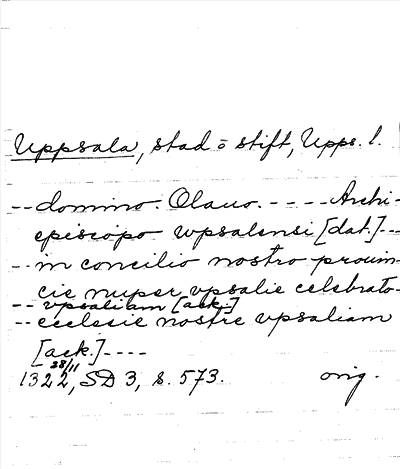 Uppsala, stad o stift, Upps. l.
-- domino. Olauo. - - - - Archi-
episcopo wpsalensi [dat.] --
-- in concilio nostro prouin-
cie nuper vpsalie celebrato-
-- vpsaliam [ack.]
-- ecclesie nostre vpsaliam
[ack.] ----
28/11
1322, SD 3, s. 573. orig.